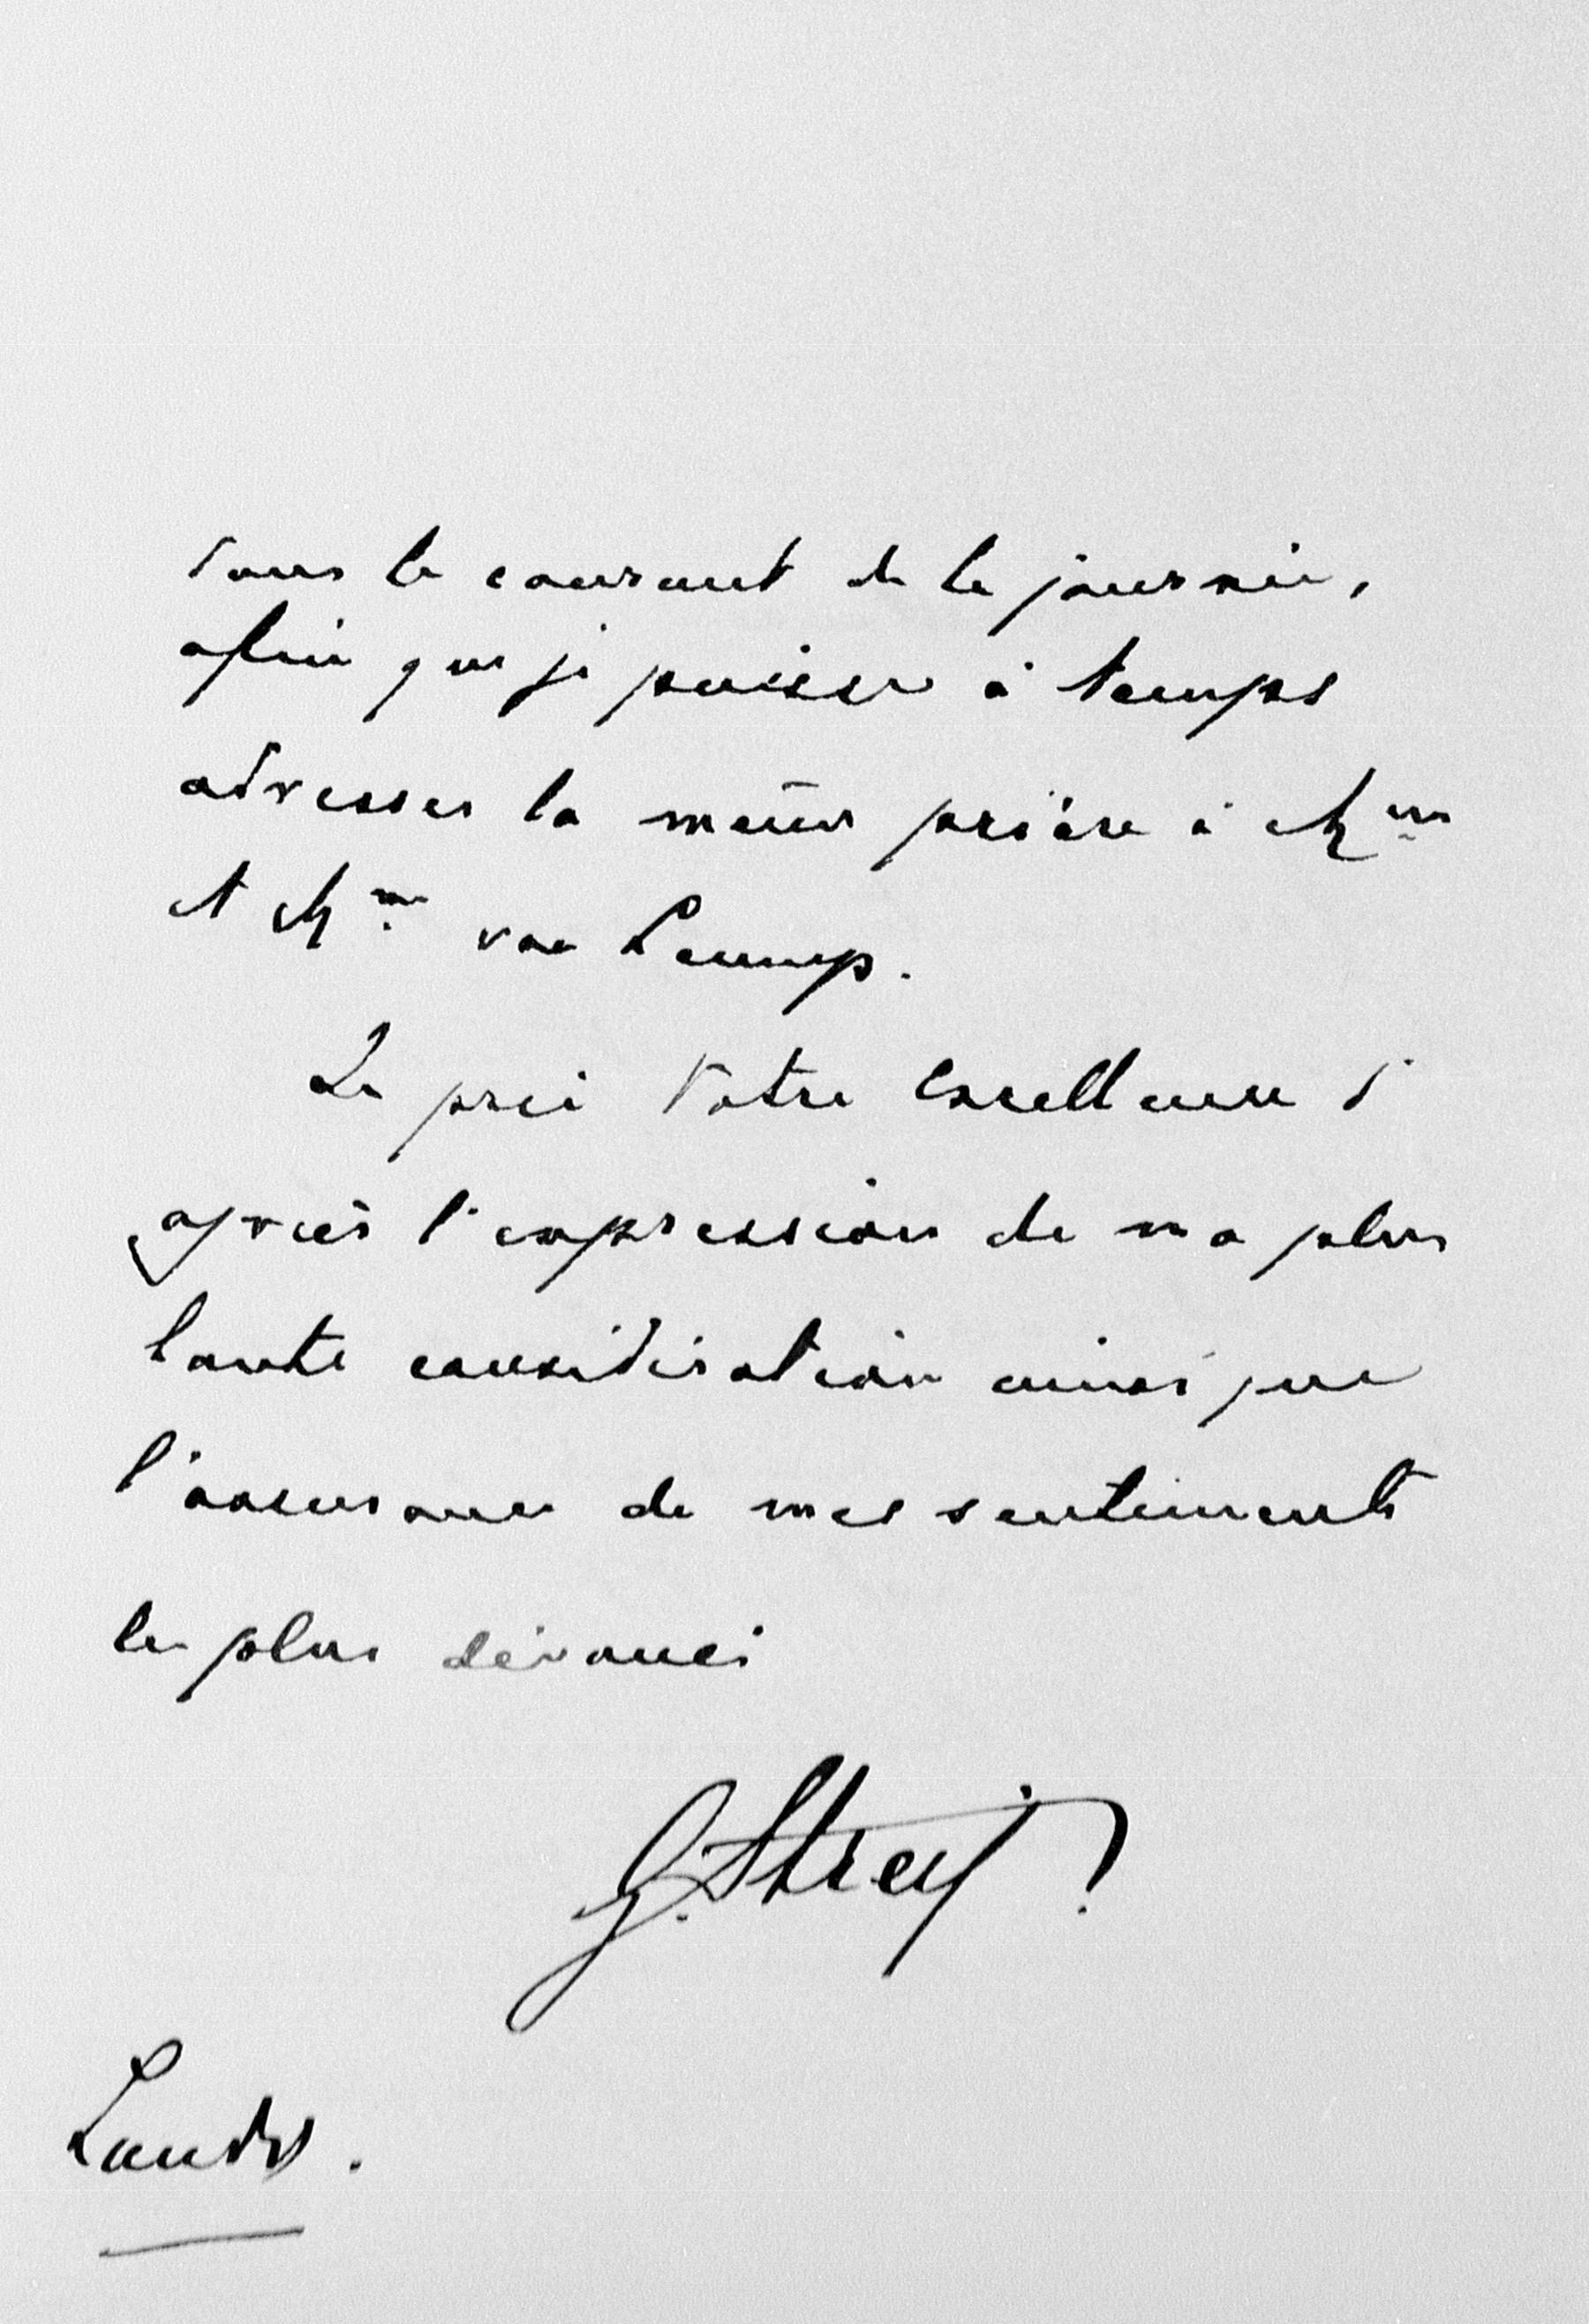 dans le courant de la journée,
afin que je puisse à temps
adresser la même prière à Mr
et Mme van Lennep.
Je prie Votre Excellence d'
agréer l'expression de ma plus
haute considération ainsi que
l'assurance de mes sentiments
les plus dévoués
G. Streit
Lundi.